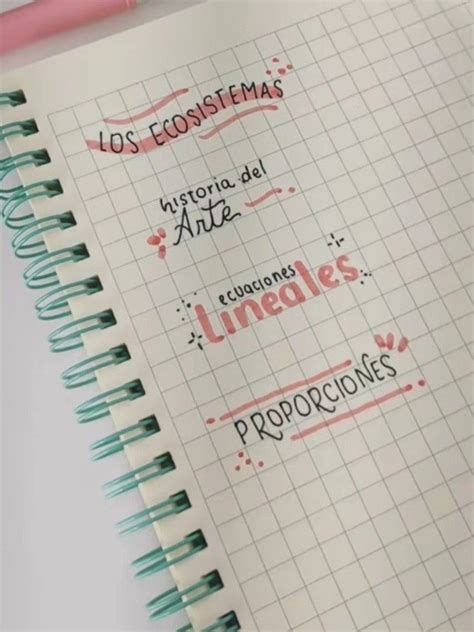 LOS ECOSISTEMAS
historia del
Arte
ecuaciones
Lineales
PROPORCIONES